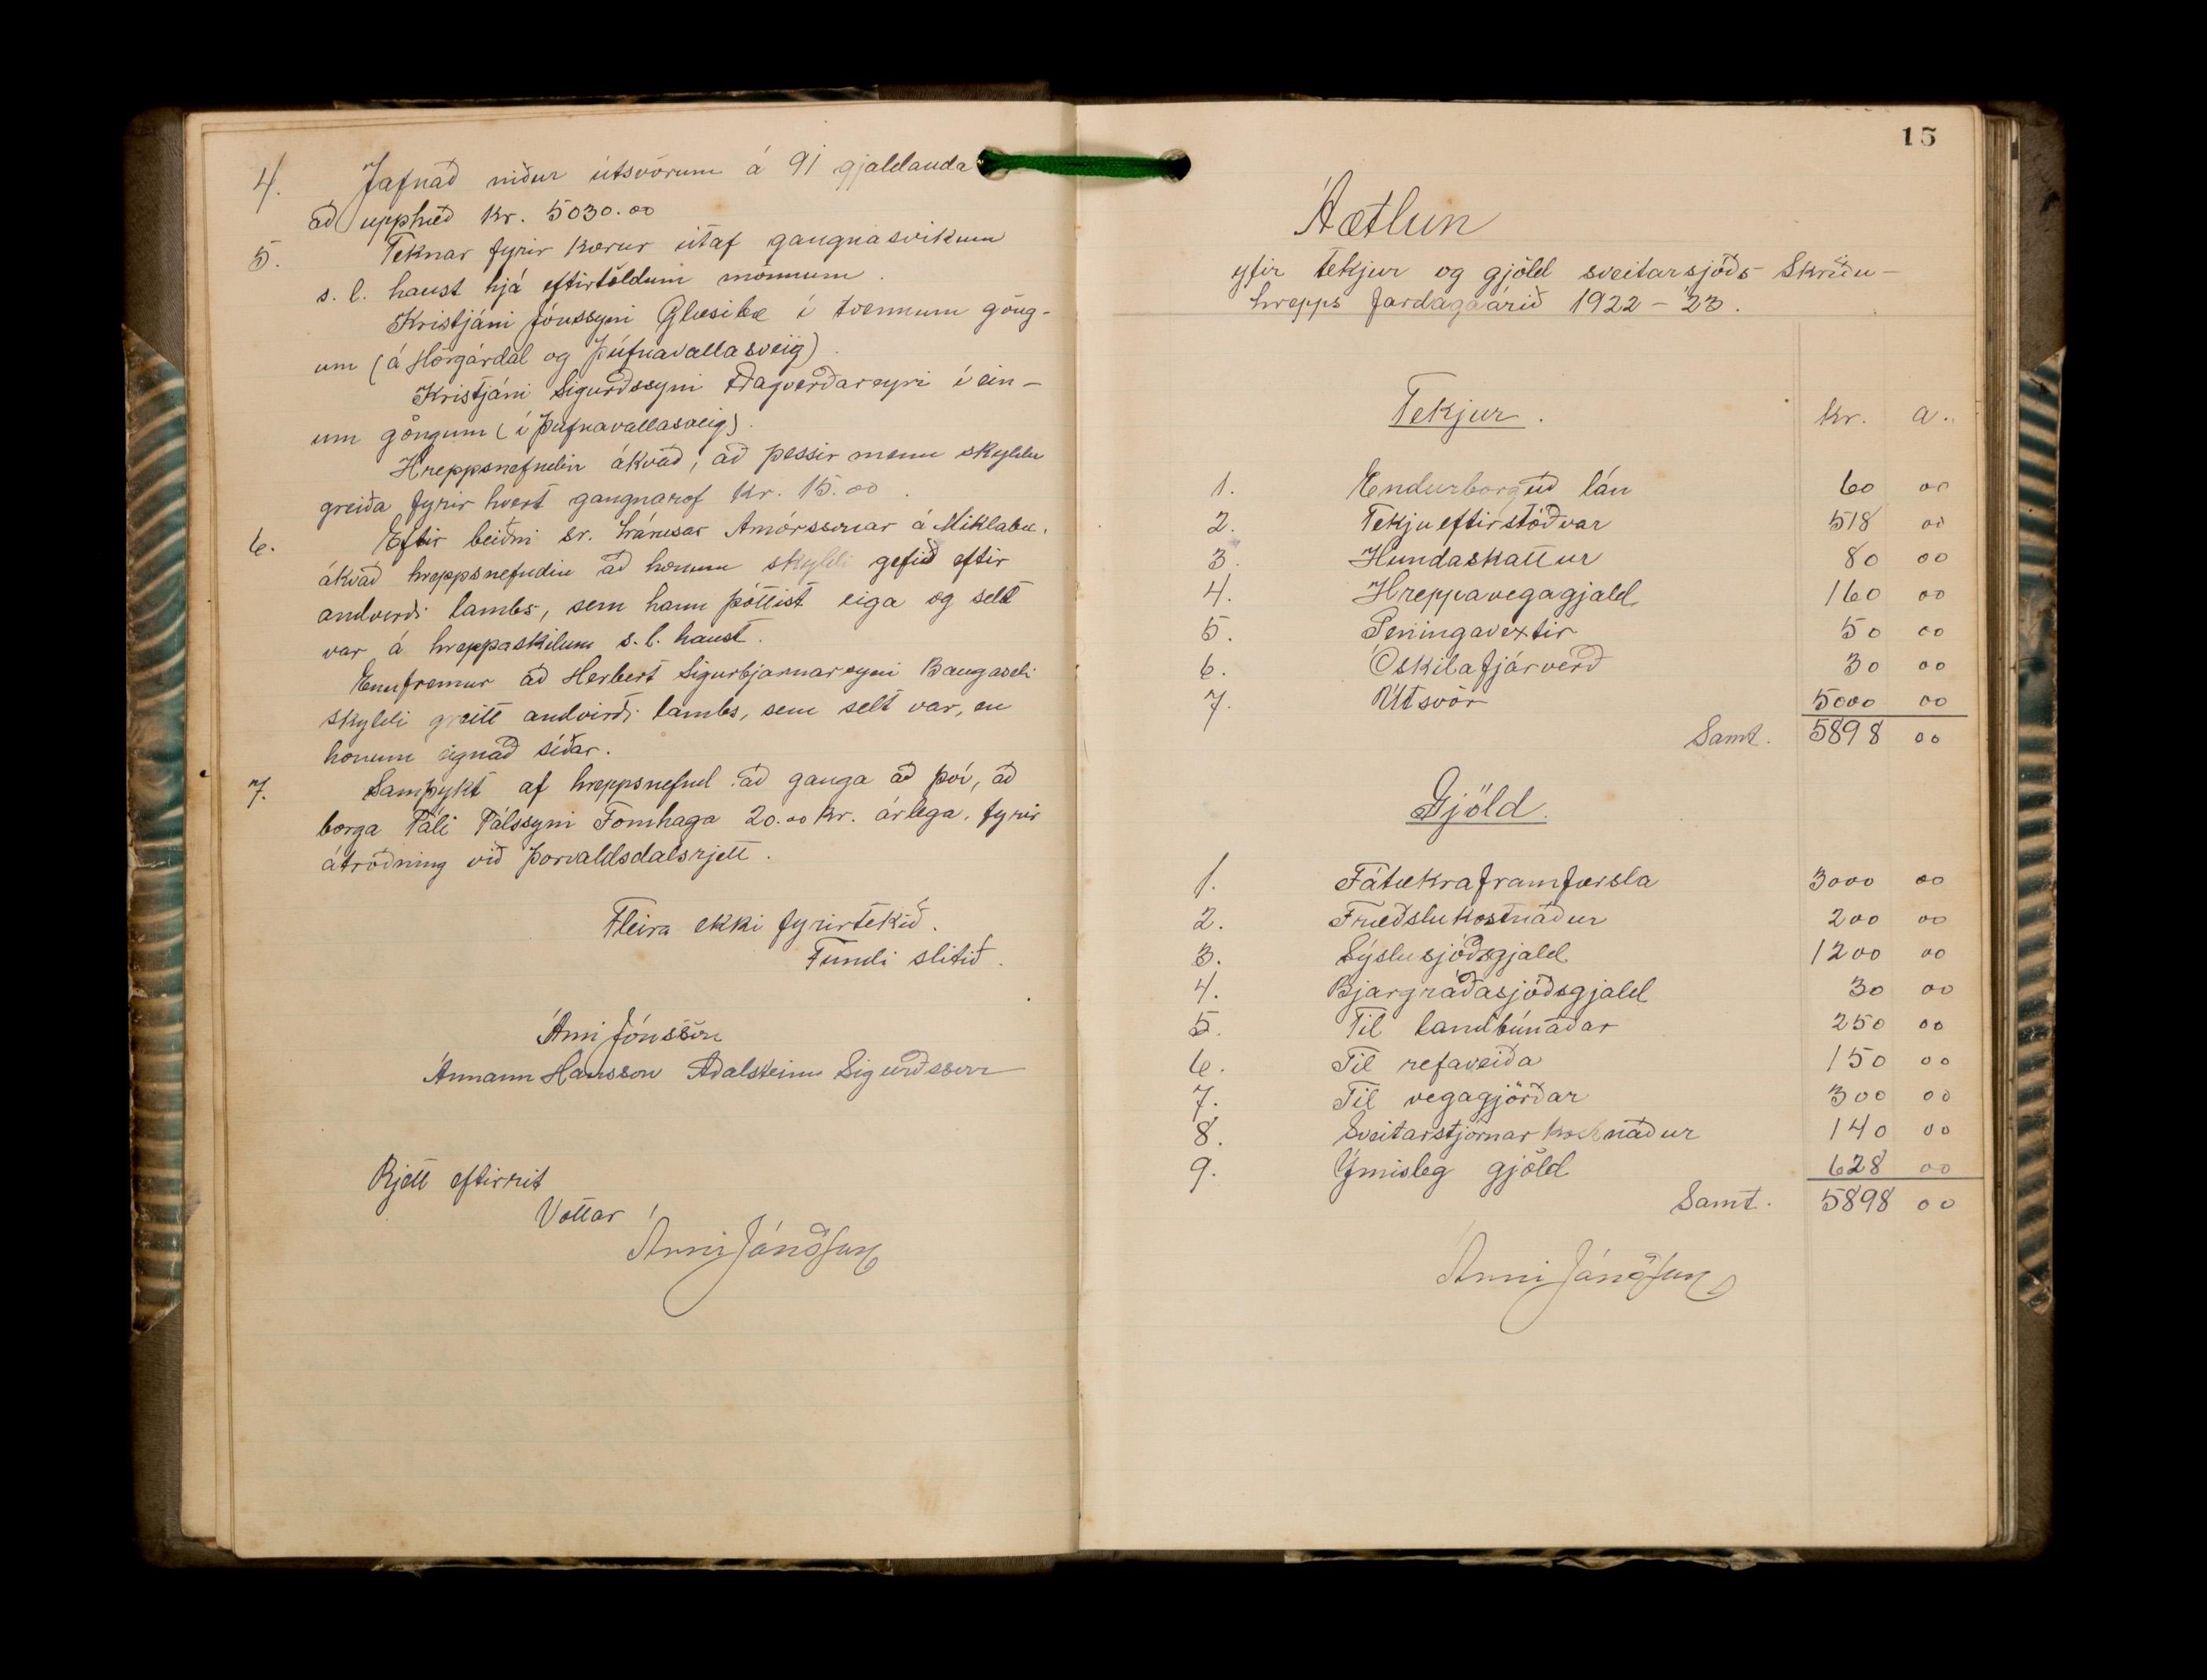 4. Jafnað niður útsvörum á 91 gjaldanda
að upphæð kr. 5030.00
5. Teknar fyrir kærur útaf gangnasvikum
s. l. haust hjá eftirtöldum mönnum.
Kristjáni Jónssyni Glæsibæ í tvennum göng-
um (á Hörgárdal og Þúfnavallasveig)
Kristjáni Sigurðssyni Dagverðareyri í ein-
um göngum (í Þúfnavallasveig).
Hreppsnefndin ákvað, að þessir menn skyldu
greiða fyrir hvert gangnarof kr. 15.00.
6. Eftir beiðni sr. Lárusar Arnórssonar á Miklabæ,
ákvað hreppsnefndin að honum skyldi gefið eftir
andvirði lambs, sem hann þóttist eiga og selt
var á hreppaskilum s. l. haust.
Ennfremur að Herbert Sigurbjarnarsyni Baugaseli
skyldi greitt andvirði lambs, sem selt var, en
honum eignað síðar.
7. Samþykt af hreppsnefnd að ganga að því, að
borga Páli Pálssyni Fornhaga 20.00 kr. árlega, fyrir
átroðning við Þorvaldsdalsrjett.
Fleira ekki fyrirtekið.
Fundi slitið.
Árni Jónsson
Ármann Hansson Aðalsteinn Sigurðsson
Rjett eftirrit
Vottar
Árni Jónsson
15
Áætlun
yfir tekjur og gjöld sveitarsjóðs Skriðu-
hrepps fardagaárið 1922-'23.
Tekjur. kr. a.
1. Endurborguð lán 60 00
2. Tekjueftirstöðvar 518 00
3. Hundaskattur 80 00
4. Hreppavegagjald 160 00
5. Peningavextir 50 00
6. Óskilafjárverð 30 00
7. Útsvör 5000 00
Samt. 5898 00
Gjöld.
1. Fátækraframfærsla 3000 00
2. Fræðslukostnaður 200 00
3. Sýslusjóðsgjald 1200 00
4. Bjargráðasjóðsgjald 30 00
5. Til landbúnaðar 250 00
6. Til refaveiða 150 00
7. Til vegagjörðar 300 00
8. Sveitarstjórnarkostnaður 140 00
9. Ýmisleg gjöld 628 00
Samt. 5898 00
Árni Jónsson